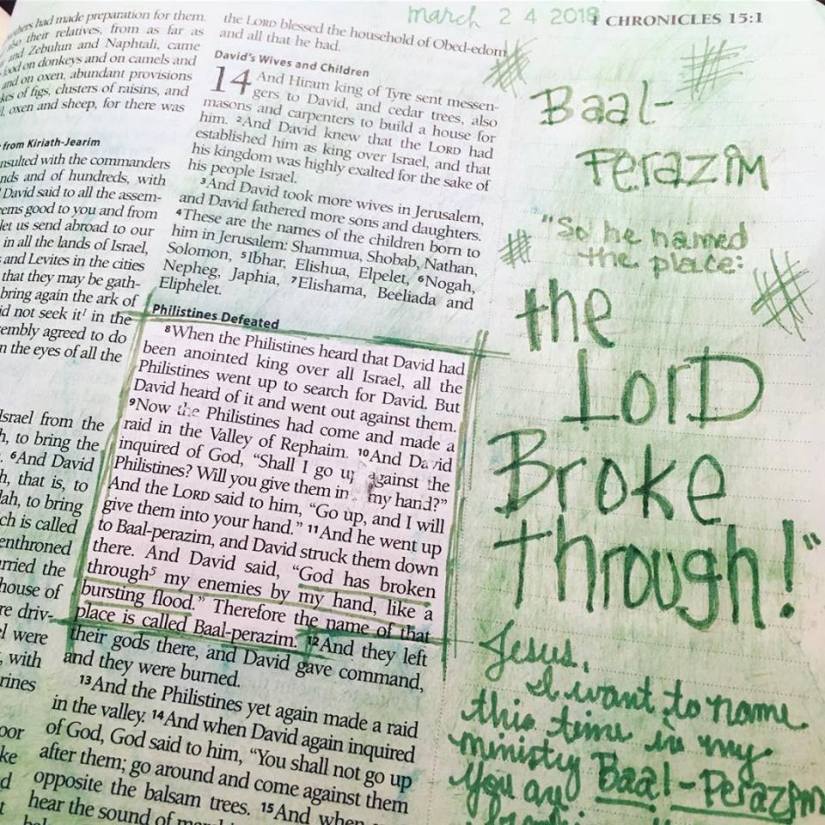 march 2 4 2018
1 CHRONICLES 15:1
had made preparation for them.
their relatives, from as far as
and Zebulun and Naphtali, came
food on donkeys and on camels and
and on oxen, abundant provisions
of figs, clusters of raisins, and
oxen and sheep, for there was
from Kiriath-Jearim
nsulted with the commanders
nds and of hundreds, with
David said to all the assem-
ems good to you and from
let us send abroad to our
in all the lands of Israel,
and Levites in the cities
that they may be gath-
bring again the ark of
id not seek it¹ in the
embly agreed to do
n the eyes of all the
Israel from the
h, to bring the
. ⁶And David
h, that is, to
dah, to bring
ch is called
enthroned
rried the
house of
re driv-
el were
, with
rines
oor
ke
d
the LORD blessed the household of Obed-edom
and all that he had.
David's Wives and Children
14 And Hiram king of Tyre sent messen-
gers to David, and cedar trees, also
masons and carpenters to build a house for
him. ²And David knew that the LORD had
established him as king over Israel, and that
his kingdom was highly exalted for the sake of
his people Israel.
³And David took more wives in Jerusalem,
and David fathered more sons and daughters.
⁴These are the names of the children born to
him in Jerusalem: Shammua, Shobab, Nathan,
Solomon, ⁵Ibhar, Elishua, Elpelet, ⁶Nogah,
Nepheg, Japhia, ⁷Elishama, Beeliada and
Eliphelet.
Philistines Defeated
⁸When the Philistines heard that David had
been anointed king over all Israel, all the
Philistines went up to search for David. But
David heard of it and went out against them.
⁹Now the Philistines had come and made a
raid in the Valley of Rephaim. ¹⁰And David
inquired of God, "Shall I go up against the
Philistines? Will you give them in my hand?"
And the LORD said to him, "Go up, and I will
give them into your hand." ¹¹And he went up
to Baal-perazim, and David struck them down
there. And David said, "God has broken
through⁵ my enemies by my hand, like a
bursting flood." Therefore the name of that
place is called Baal-perazim. ¹²And they left
their gods there, and David gave command,
and they were burned.
¹³And the Philistines yet again made a raid
in the valley. ¹⁴And when David again inquired
of God, God said to him, "You shall not go up
after them; go around and come against them
opposite the balsam trees. ¹⁵And when
hear the sound of
Baal-
Perazim
"So he named
the place:
the
LorD
Broke
Through!"
Jesus,
I want to name
this time in my
ministry Baal-Perazim
You are